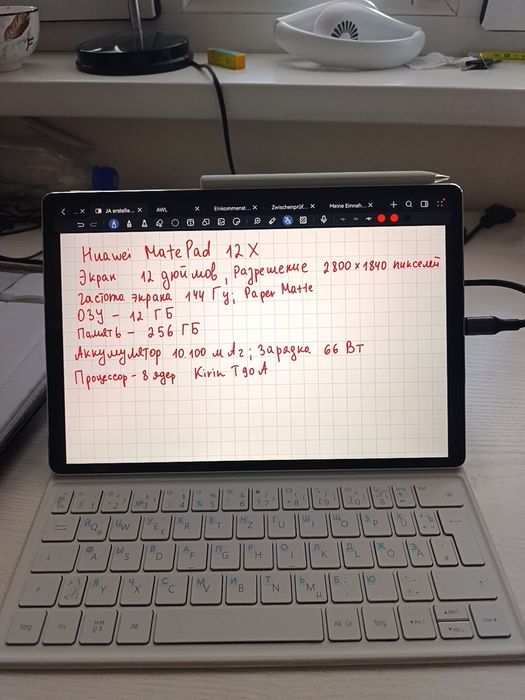 JA erstelle...
AWL
Einkommenst...
Zwischenprüf...
Meine Einnah...
Huawei MatePad 12 X
Экран 12 дюймов, Разрешение 2800 x 1840 пикселей
Частота экрана 144 Гц; Paper Matte
ОЗУ - 12 ГБ
Память - 256 ГБ
Аккумулятор 10.100 мАг; Зарядка 66 Вт
Процессор - 8 ядер Kirin T90A
Strg Fn Alt Alt Gr Strg